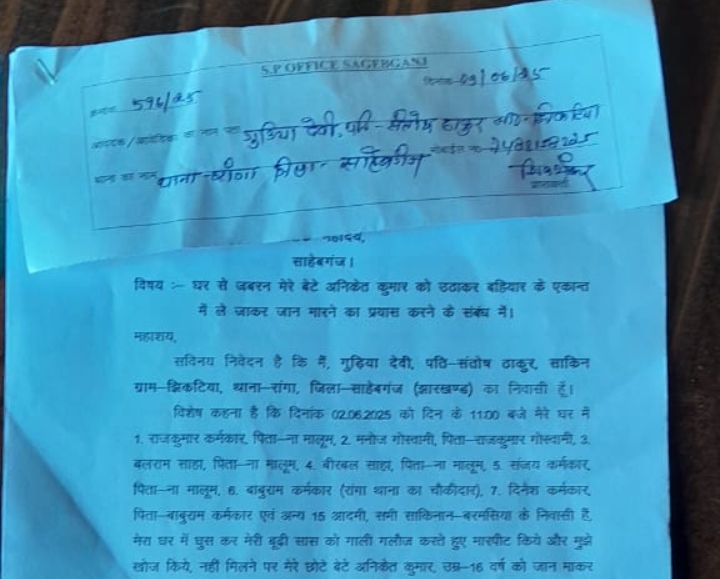 S.P OFFICE SAGEBGANJ
क्रमांक 596/25 दिनांक 09/06/25
आवेदक/आवेदिका का नाम पता गुड़िया देवी, पति-संतोष ठाकुर ग्राम-झिकटिया
थाना का नाम थाना-रांगा जिला-साहेबगंज मोबाईल नं०
साहेबगंज।
विषय :- घर से जबरन मेरे बेटे अनिकेत कुमार को उठाकर बडियार के एकान्त
में ले जाकर जान मारने का प्रयास करने के संबंध में।
महाशय,
सविनय निवेदन है कि मैं, गुड़िया देवी, पति-संतोष ठाकुर, साकिन
ग्राम-झिकटिया, थाना-रांगा, जिला-साहेबगंज (झारखण्ड) का निवासी हूँ।
विशेष कहना है कि दिनांक 02.06.2025 को दिन के 11:00 बजे मेरे घर में
1. राजकुमार कर्मकार, पिता-ना मालूम, 2. मनोज गोस्वामी, पिता-राजकुमार गोस्वामी, 3.
बलराम साहा, पिता-ना मालूम, 4. बीरबल साहा, पिता-ना मालूम, 5. संजय कर्मकार,
पिता-ना मालूम, 6. बाबुराम कर्मकार (रांगा थाना का चौकीदार), 7. दिनेश कर्मकार,
पिता-बाबुराम कर्मकार एवं अन्य 15 आदमी, सभी साकिनान-बरमसिया के निवासी हैं,
मेरा घर में घुस कर मेरी बूढ़ी सास को गाली गलौज करते हुए मारपीट किये और मुझे
खोज किये, नहीं मिलने पर मेरे छोटे बेटे अनिकेत कुमार, उम्र-16 वर्ष को जान मारकर